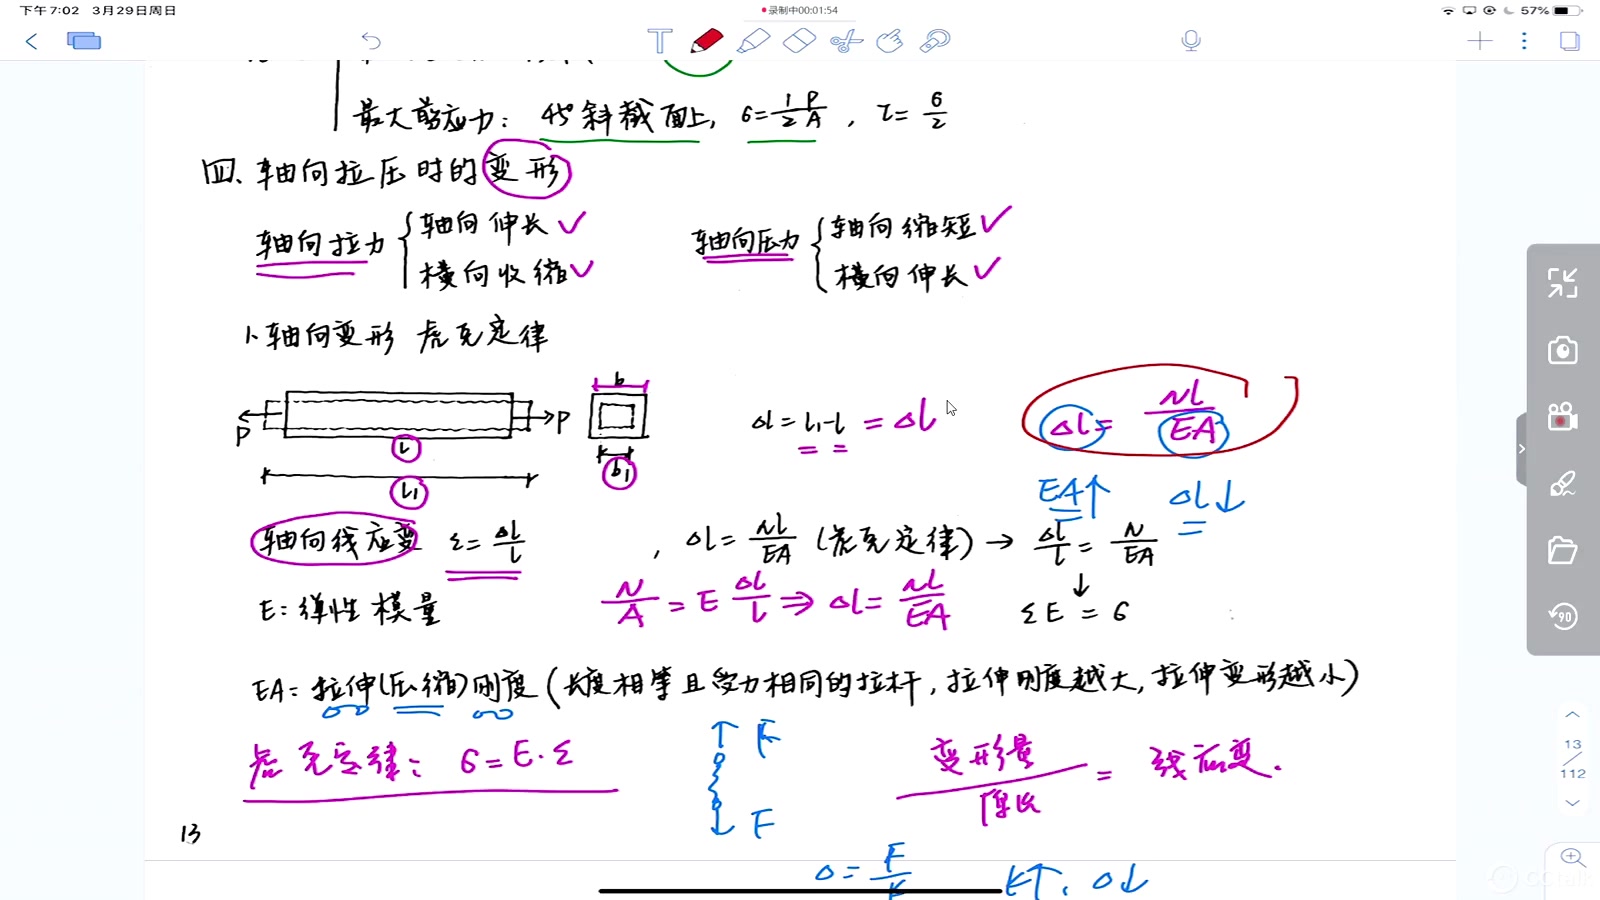 下午7:02 3月29日周日
录制中00:01:54
57%
最大剪应力: 45°斜截面上, σ=1/2 P/A, τ=σ/2
四、轴向拉压时的变形
轴向拉力 { 轴向伸长 ✓
横向收缩 ✓
轴向压力 { 轴向缩短 ✓
横向伸长 ✓
1、轴向变形 虎克定律
P P
L
L₁
b
b₁
Δl = l₁-l = Δl
Δl = Nl/EA
EA↑ Δl↓
轴向线应变 ε = Δl/l , Δl = Nl/EA (虎克定律) → Δl/l = N/EA
↓
E: 弹性模量
N/A = E Δl/l ⇒ Δl = Nl/EA
εE = σ
EA: 拉伸(压缩)刚度 (长度相等且受力相同的拉杆, 拉伸刚度越大, 拉伸变形越小)
虎克定律: σ = E·ε
↑ F
↓ F
变形量/原长 = 线应变.
13
Δ = F/K K↑, Δ↓
T
90
13
/
112